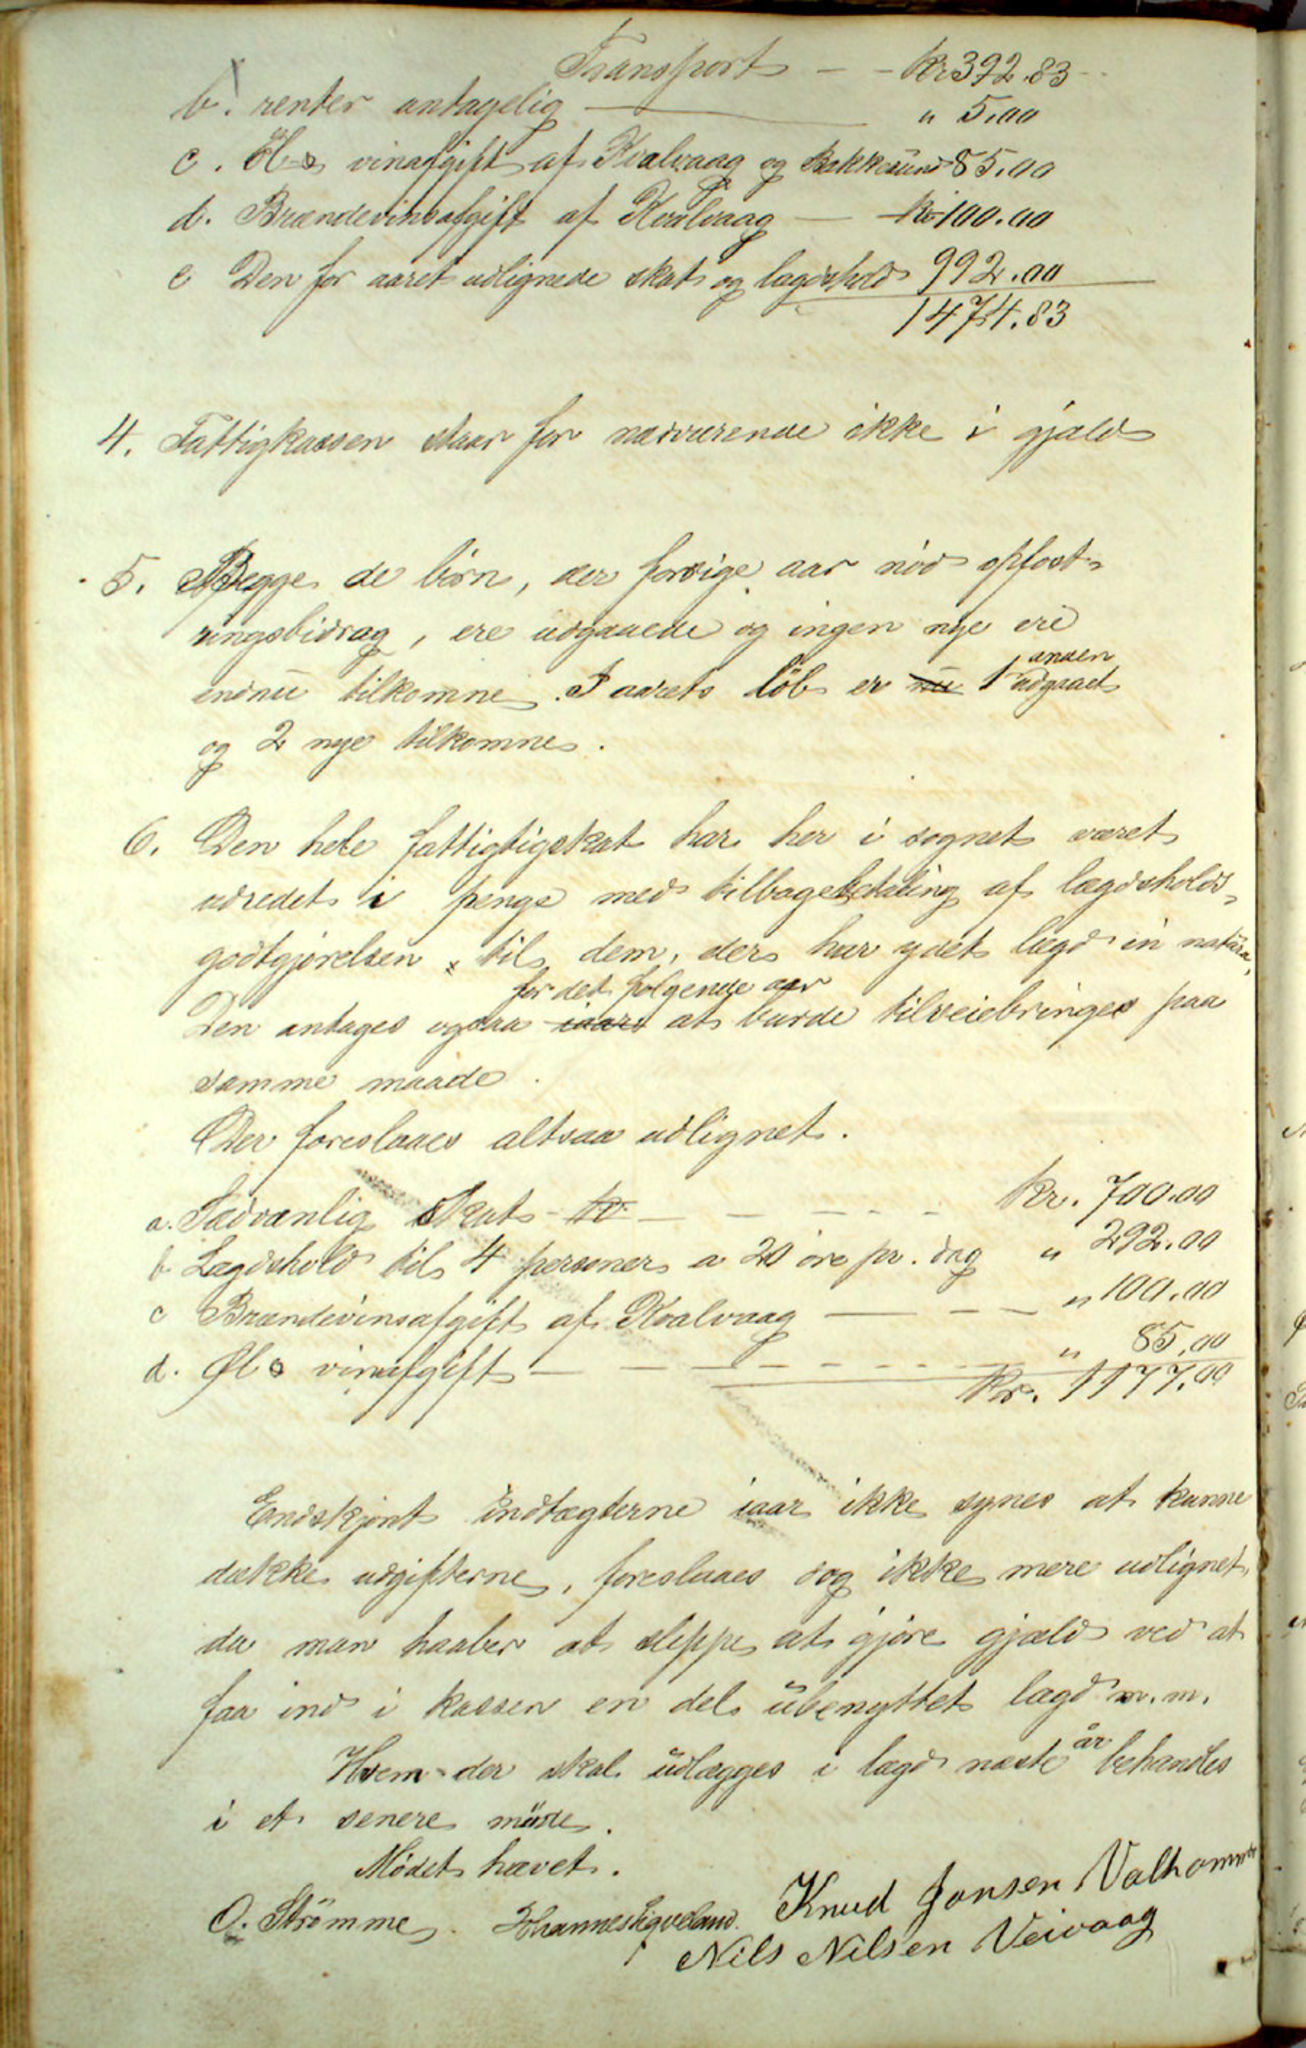 Transport - - Kr 392.83
b. renter antagelig - " 5,00
c. Øl & vinafgift af Kvalvaag og Bakkesund 85,00
d. Brændevinsafgift af Kvalvaag - Kr 100.00
e Den for aaret udlignede skat og lægdshold 992.00
1474.83
4. Fattigkassen staar for nærværende ikke i gjæld
5. Begge de børn, der forrige aar nød opfost-
ringsbidrag, ere udgaaede og ingen nye ere
endnu tilkomne. I aarets løb er nu 1 anden udgaaet
og 2 nye tilkomne.
6. Den hele fattigtigskat har her i sognet været
udredet i penge med tilbagebetaling af lægdsholds-
godtgjørelsen til dem, der har ydet lægd in natura,
for det følgende aar
Den antages ogsaa iaar at burde tilveiebringes paa
samme maade.
Der foreslaaes altsaa udlignet.
a. Sædvanlig skat - kr - - - - - Kr. 700.00
b Lægdshold til 4 personer a 20 øre pr. dag " 292.00
c Brændevinsafgift af Kvalvaag - - - " 100.00
d. Øl & vinafgift - - - - - - - " 85,00
Kr. 1177.00
Endskjønt indtægterne iaar ikke synes at kunne
dække udgifterne, foreslaaes dog ikke mere udlignet,
da man haaber at slippe at gjøre gjæld ved at
faa ind i kassen en del ubenyttet lægd m.m.
Hvem der skal udlægges i lægd næste år behandles
i et senere møde.
Mødet hævet.
O. Strømme. Johannes Eigveland. Knud Jonsen Valhammer
Nils Nilsen Veivaag